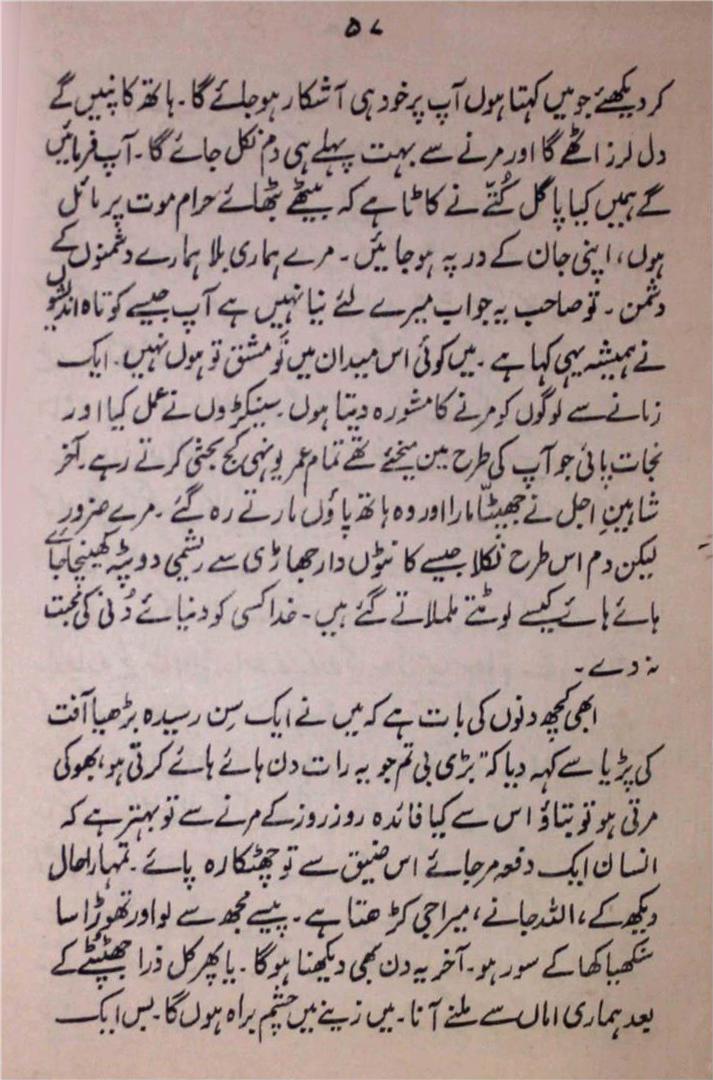 ۵۷
کر دیکھئے جو میں کہتا ہوں آپ پر خود ہی آشکار ہو جائے گا۔ ہاتھ کانپیں گے
دل لرز اٹھے گا اور مرنے سے بہت پہلے ہی دم نکل جائے گا۔ آپ فرمائیں
گے ہمیں کیا پاگل کُتّے نے کاٹا ہے کہ بیٹھے بٹھائے حرام موت پر مائل
ہوں، اپنی جان کے درپہ ہو جائیں۔ مرے ہماری بلا ہمارے دشمنوں کے
دشمن۔ تو صاحب یہ جواب میرے لئے نیا نہیں ہے آپ جیسے کوتاہ اندیشوں
نے ہمیشہ یہی کہا ہے۔ میں کوئی اس میدان میں نَو مشق تو ہوں نہیں۔ ایک
زمانے سے لوگوں کو مرنے کا مشورہ دیتا ہوں۔ سینکڑوں نے عمل کیا اور
نجات پائی جو آپ کی طرح مین میخئے تھے تمام عمر یونہی کج بحثی کرتے رہے۔ آخر
شاہینِ اجل نے جھپٹّا مارا اور وہ ہاتھ پاؤں مارتے رہ گئے۔ مرے ضرور
لیکن دم اس طرح نکلا جیسے کانٹوں دار جھاڑی سے ریشمی دوپٹہ کھینچا جائے
ہائے ہائے کیسے لوٹتے ململاتے گئے ہیں۔ خدا کسی کو دنیائے دُنی کی محبت
نہ دے۔
ابھی کچھ دنوں کی بات ہے کہ میں نے ایک سِن رسیدہ بڑھیا آفت
کی پڑیا سے کہہ دیا کہ "بڑی بی تم جو یہ رات دن ہائے ہائے کرتی ہو، بھوکی
مرتی ہو تو بتاؤ اس سے کیا فائدہ روز روز کے مرنے سے تو بہتر ہے کہ
انسان ایک دفعہ مر جائے اس ضیق سے تو چھٹکارہ پائے۔ تمہارا حال
دیکھ کے، اللہ جانے، میرا جی کڑھتا ہے۔ پیسے مجھ سے لو اور تھوڑا سا
سنکھیا کھا کے سو رہو۔ آخر یہ دن بھی دیکھنا ہوگا۔ یا پھر کل ذرا جھٹپٹے کے
بعد ہماری اماں سے ملنے آنا۔ میں زینے میں چشم براہ ہوں گا۔ بس ایک